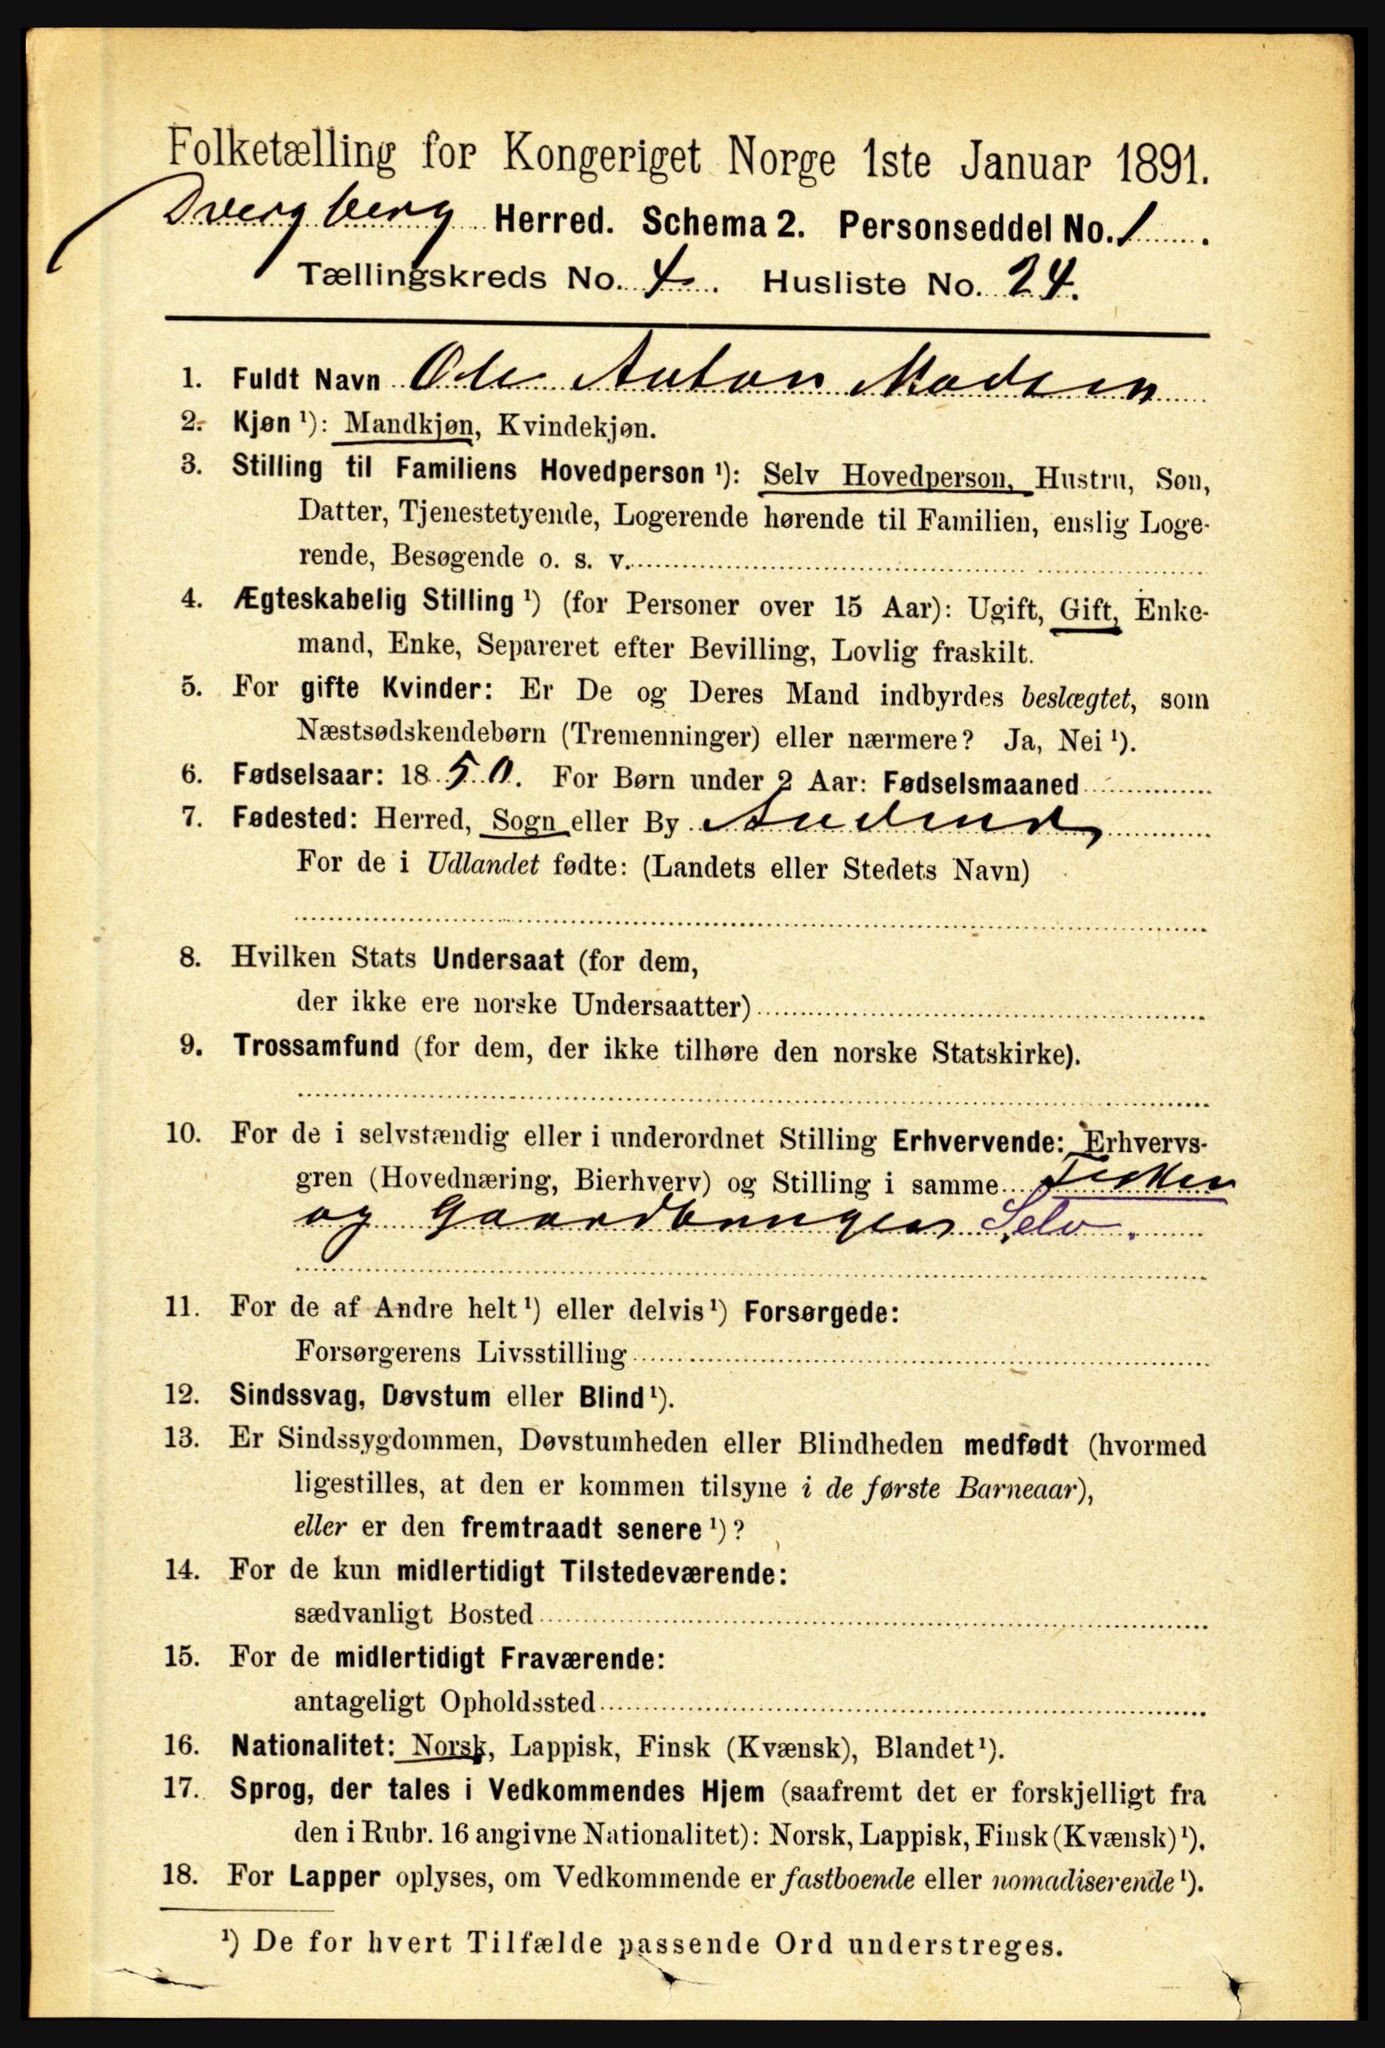 Folketælling for Kongeriget Norge 1ste Januar 1891.
Dvergberg Herred. Schema 2. Personseddel No. 1.
Tællingskreds No. 4. Husliste No. 24.
1. Fuldt Navn Ole Anton Madsen
2. Kjøn ¹): Mandkjøn, Kvindekjøn.
3. Stilling til Familiens Hovedperson ¹): Selv Hovedperson, Hustru, Søn,
Datter, Tjenestetyende, Logerende hørende til Familien, enslig Loge-
rende, Besøgende o. s. v.
4. Ægteskabelig Stilling ¹) (for Personer over 15 Aar): Ugift, Gift, Enke-
mand, Enke, Separeret efter Bevilling, Lovlig fraskilt.
5. For gifte Kvinder: Er De og Deres Mand indbyrdes beslægtet, som
Næstsødskendebørn (Tremenninger) eller nærmere? Ja, Nei ¹).
6. Fødselsaar: 1850. For Børn under 2 Aar: Fødselsmaaned
7. Fødested: Herred, Sogn eller By
For de i Udlandet fødte: (Landets eller Stedets Navn)
8. Hvilken Stats Undersaat (for dem,
der ikke ere norske Undersaatter)
9. Trossamfund (for dem, der ikke tilhøre den norske Statskirke).
10. For de i selvstændig eller i underordnet Stilling Erhvervende: Erhvervs-
gren (Hovednæring, Bierhverv) og Stilling i samme Fisker
og Gaardbruger Selv.
11. For de af Andre helt ¹) eller delvis ¹) Forsørgede:
Forsørgerens Livsstilling
12. Sindssvag, Døvstum eller Blind ¹).
13. Er Sindssygdommen, Døvstumheden eller Blindheden medfødt (hvormed
ligestilles, at den er kommen tilsyne i de første Barneaar),
eller er den fremtraadt senere ¹)?
14. For de kun midlertidigt Tilstedeværende:
sædvanligt Bosted
15. For de midlertidigt Fraværende:
antageligt Opholdssted
16. Nationalitet: Norsk, Lappisk, Finsk (Kvænsk), Blandet ¹).
17. Sprog, der tales i Vedkommendes Hjem (saafremt det er forskjelligt fra
den i Rubr. 16 angivne Nationalitet): Norsk, Lappisk, Finsk (Kvænsk) ¹).
18. For Lapper oplyses, om Vedkommende er fastboende eller nomadiserende ¹).
¹) De for hvert Tilfælde passende Ord understreges.